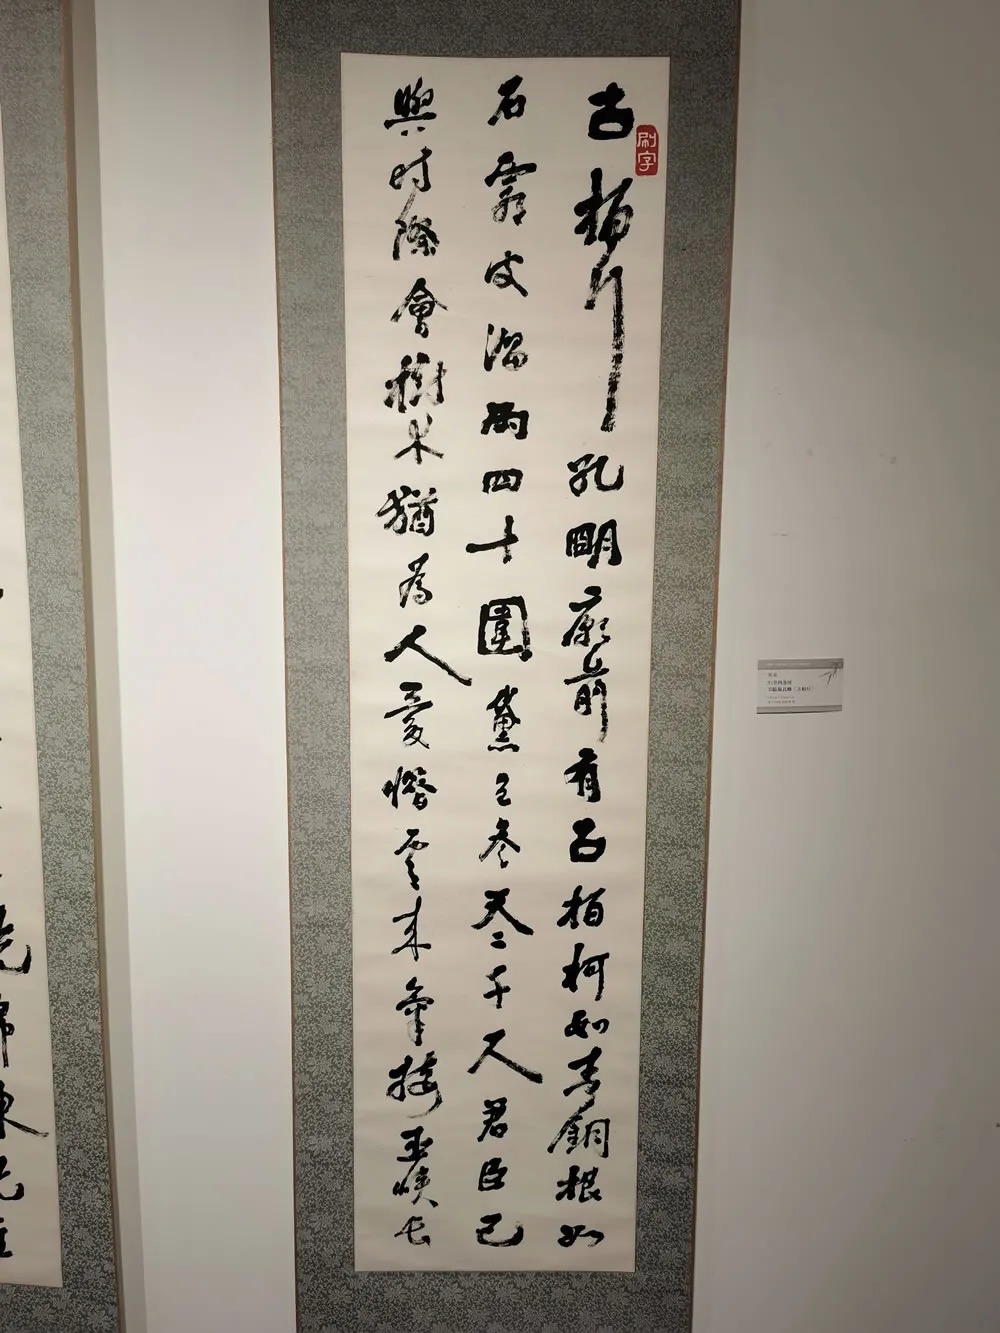 古柏行孔明廟前有古柏柯如青銅根如
石霜皮溜雨四十圍黛色參天二千尺君臣已
與時際會樹木猶為人愛惜雲來氣接巫峽長
刷字